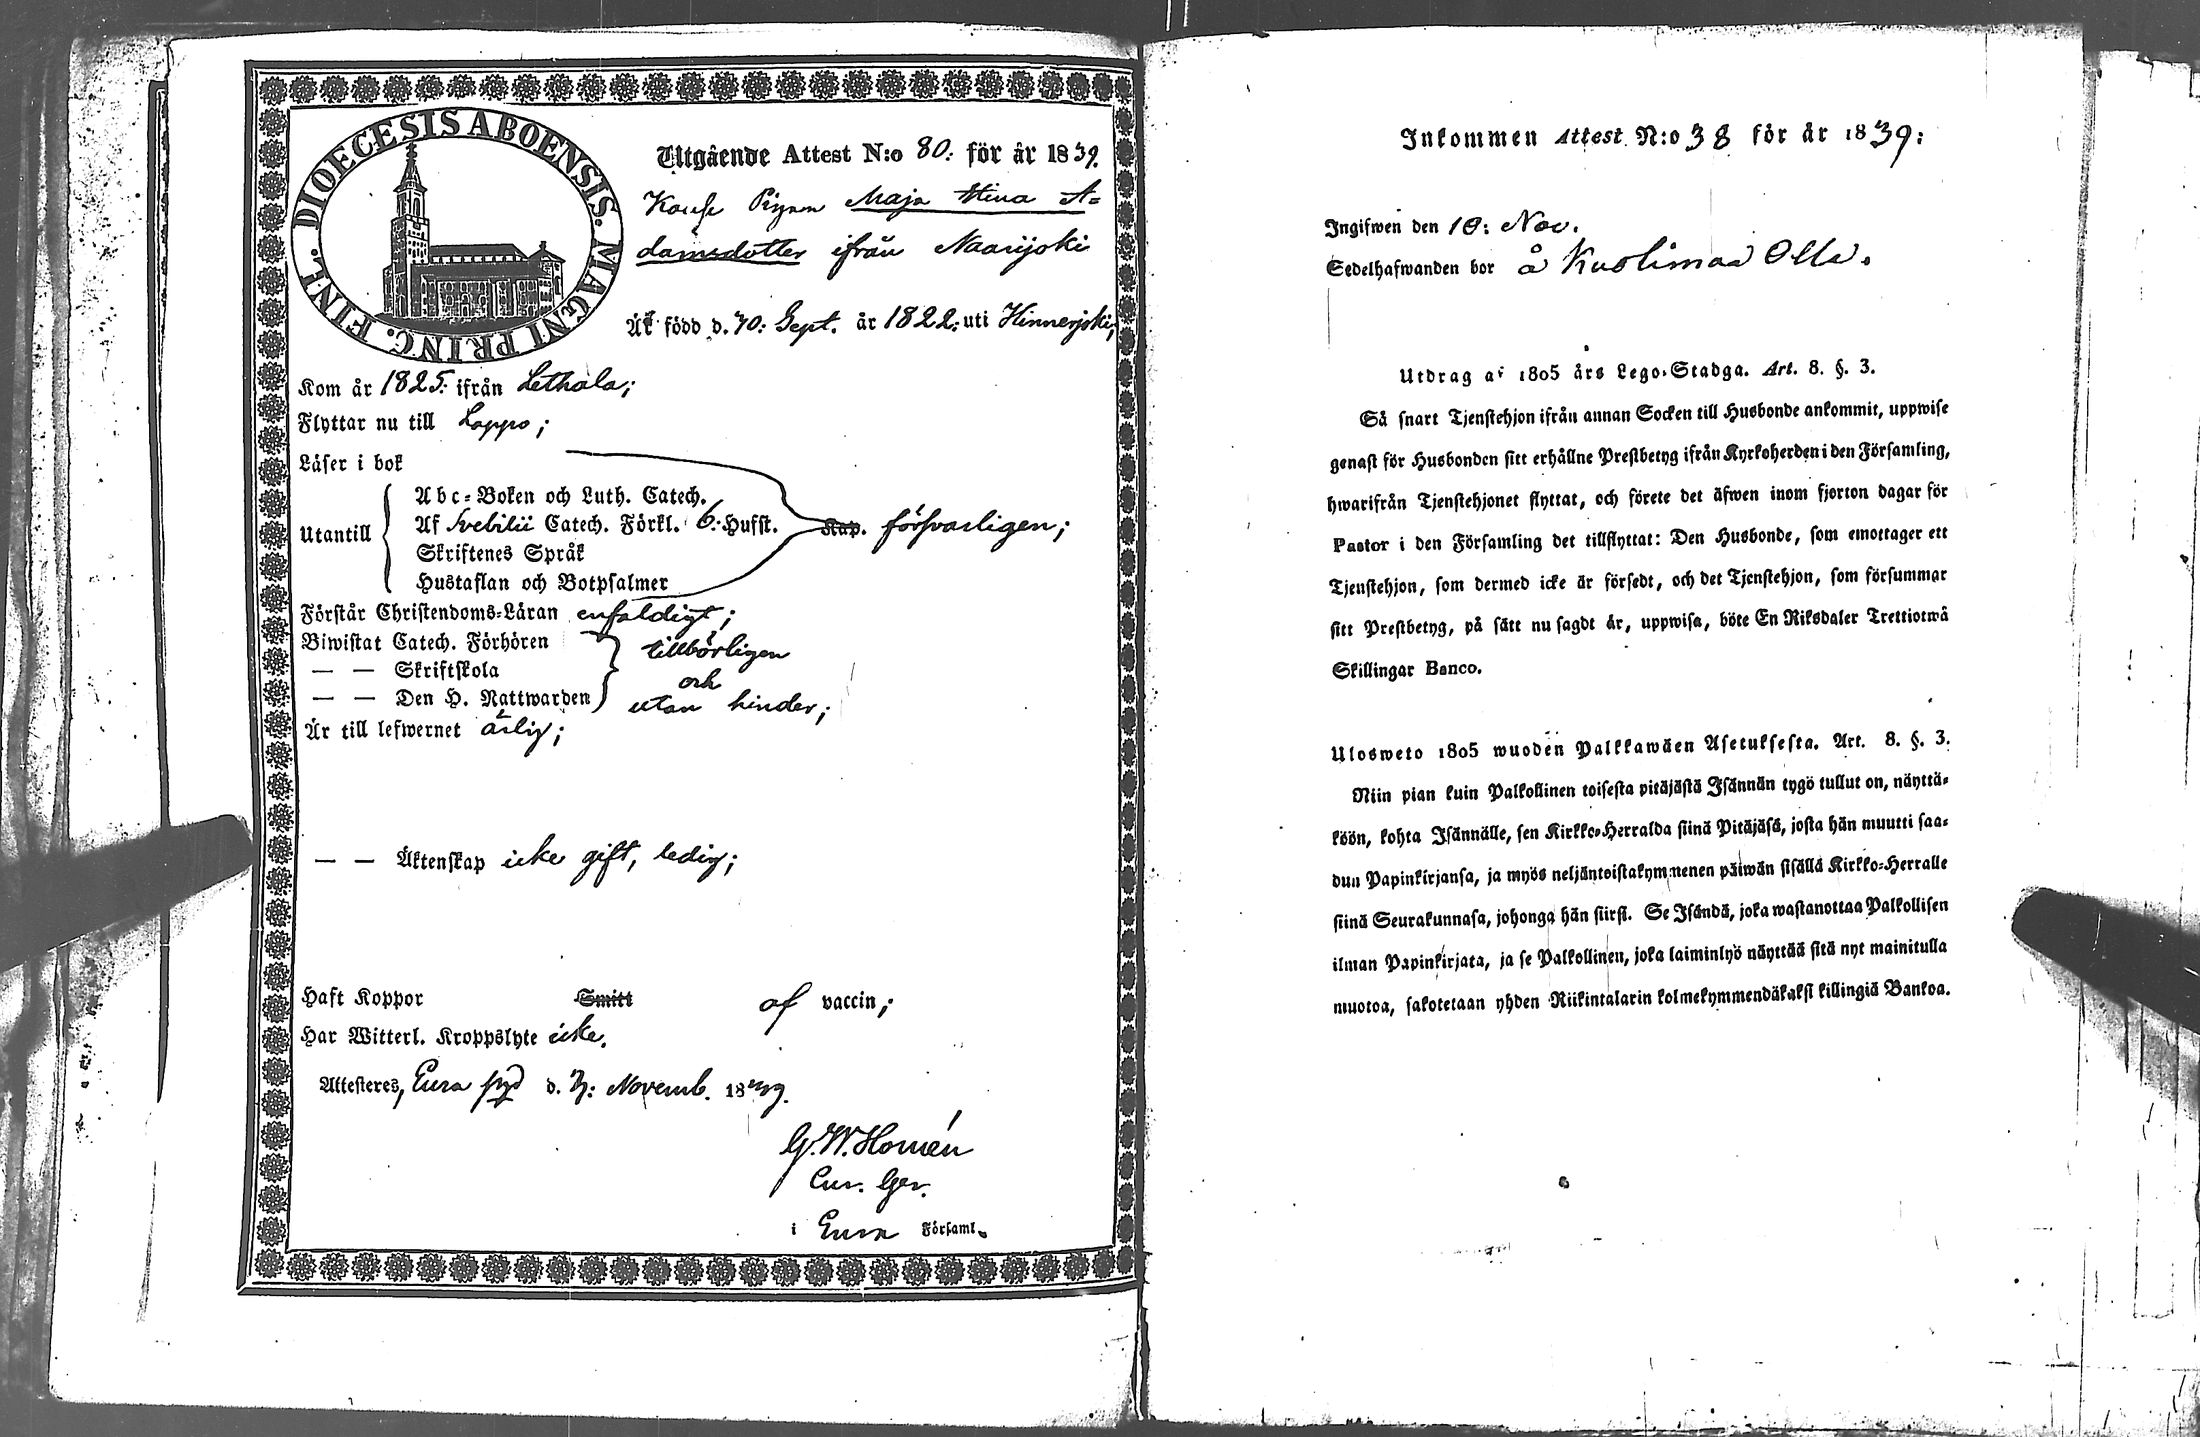 DIOECESIS ABOENSIS. MAGNI PRINC. FINL.
Utgående Attest N:o 80: för år 1839.
Maja Stina A=
damsdotter ifrån Naarijoki
Är född d. 10: Sept. år 1822: uti Hinnerjoki;
Kom år 1825: ifrån Lethala;
Flyttar nu till Loppo;
Läser i bok
Utantill
Abc=Boken och Luth. Catech.
Af Svebilii Catech. Förkl. 6: Hufst. Kap. försvarligen;
Skriftenes Språk
Hustaflan och Botpsalmer
Förstår Christendoms=Läran enfaldigt;
Biwistat Catech. Förhören
— — Skriftskola
— — Den H. Nattwarden
tillbörligen
och
utan hinder;
Är till lefwernet ärlig;
— — Äktenskap icke gift, ledig;
Haft Koppor Smitt af vaccin;
Har Witterl. Kroppslyte icke.
Attesteres, Eura d. Novemb. 1839.
G. W. Homén
Cur. Ger.
i Eura Församl.
Inkommen Attest N:o 38 för år 1839:
Ingifwen den 10: Nov.
Sedelhafwanden bor å Kuolimaa Olla.
Utdrag af 1805 års Lego-Stadga. Art. 8. §. 3.
Så snart Tjenstehjon ifrån annan Socken till Husbonde ankommit, uppwise
genast för Husbonden sitt erhållne Prestbetyg ifrån Kyrkoherden i den Församling,
hwarifrån Tjenstehjonet flyttat, och förete det äfwen inom fjorton dagar för
Pastor i den Församling det tillflyttat: Den Husbonde, som emottager ett
Tjenstehjon, som dermed icke är försedt, och det Tjenstehjon, som försummar
sitt Prestbetyg, på sätt nu sagdt är, uppwisa, böte En Riksdaler Trettiotwå
Skillingar Banco.
Ulosweto 1805 wuoden Palkkawäen Asetuksesta. Art. 8. §. 3.
Niin pian kuin Palkollinen toisesta pitäjästä Isännän tygö tullut on, näyttä=
köön, kohta Isännälle, sen Kirkko=Herralda siinä Pitäjäsä, josta hän muutti saa=
dun Papinkirjansa, ja myös neljäntoistakymmenen päiwän sisällä Kirkko=Herralle
siinä Seurakunnasa, johonga hän siirsi. Se Isändä, joka wastanottaa Palkollisen
ilman Papinkirjata, ja se Palkollinen, joka laiminlyö näyttää sitä nyt mainitulla
muotoa, sakotetaan yhden Riikintalarin kolmekymmendäkaksi killingiä Bankoa.